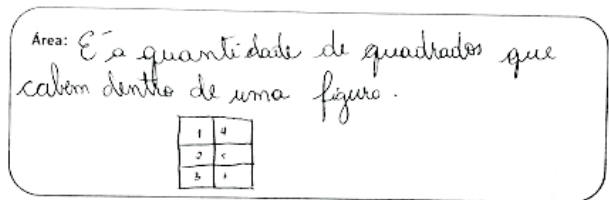 Área: É a quantidade de quadrados que
cabem dentro de uma figura.
1 4
2 5
3